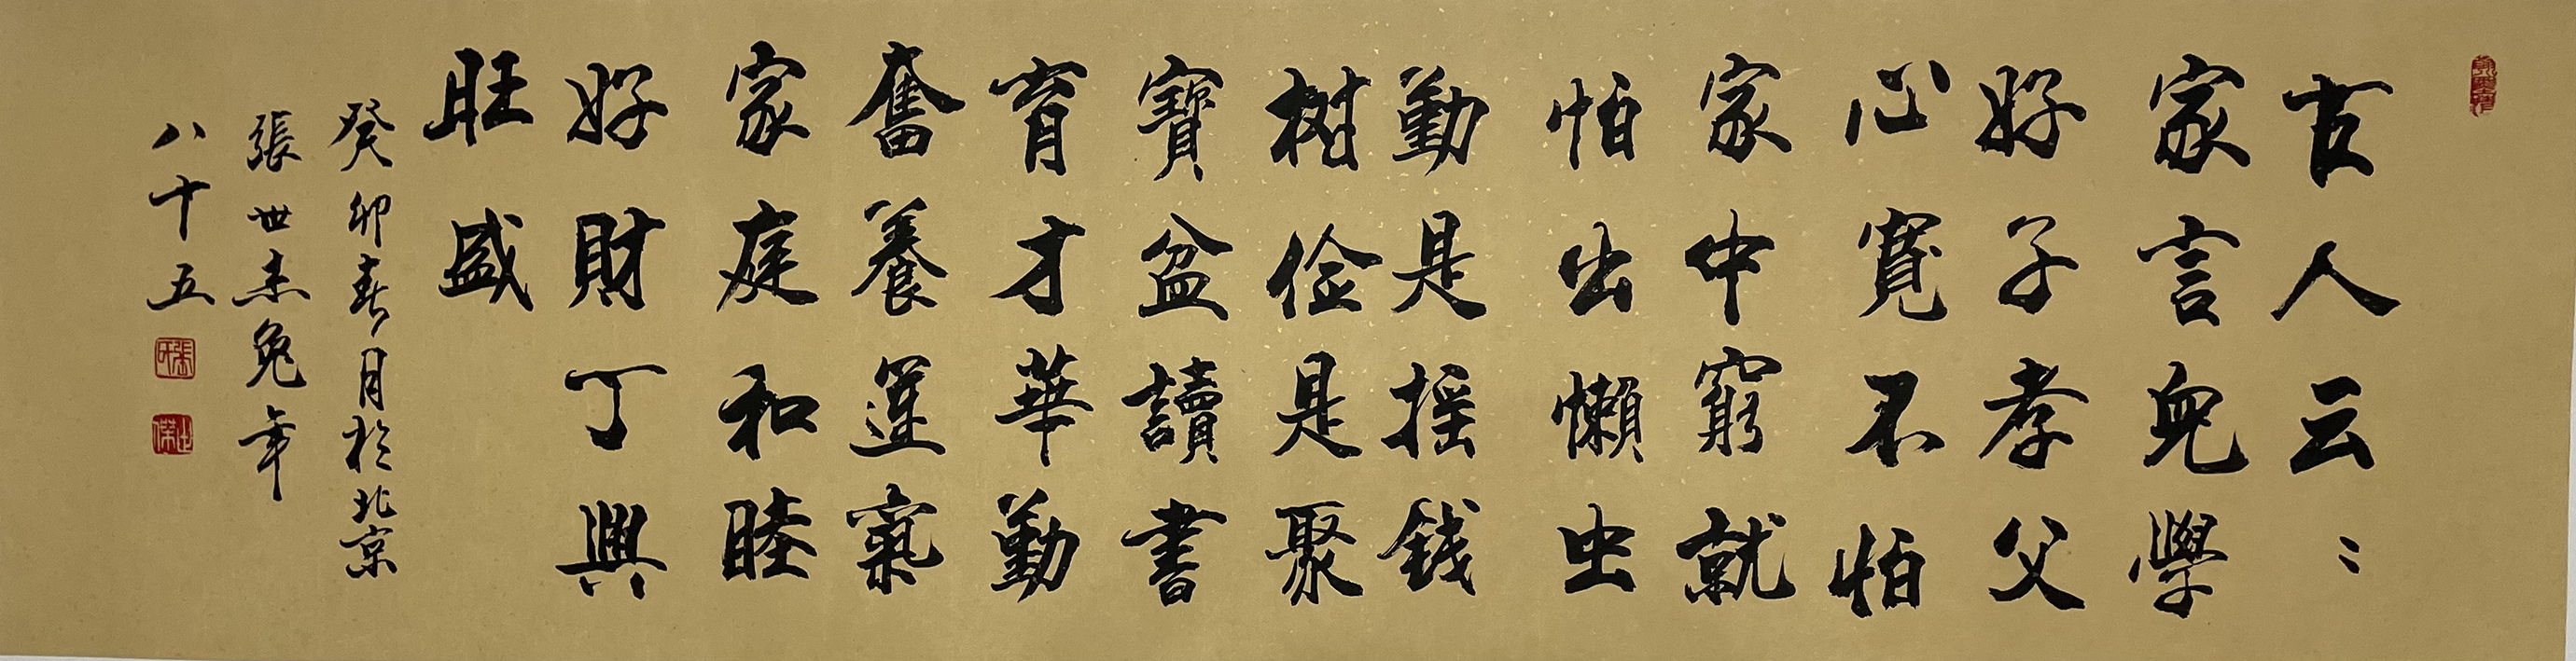 古人云：
家言兒學
好子孝父
心寬不怕
家中窮就
怕出懶虫
勤是摇钱
树俭是聚
寶盆讀書
育才華勤
奮養運氣
家庭和睦
好財丁興
旺盛
癸卯春月於北京
張世杰兔年
八十五
張氏
世傑